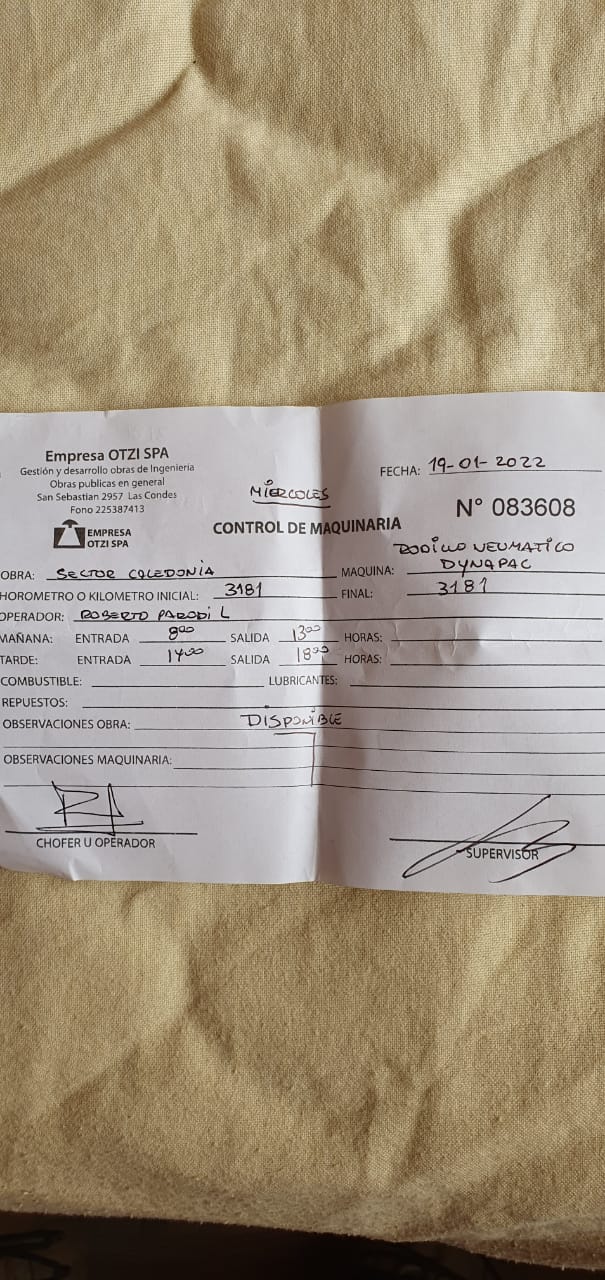 Empresa OTZI SPA
Gestión y desarrollo obras de Ingenieria
Obras publicas en general
San Sebastian 2957 Las Condes
Fono 225387413
EMPRESA
OTZI SPA
MIERCOLES
FECHA: 19-01-2022
N° 083608
CONTROL DE MAQUINARIA
OBRA: SECTOR CALEDONIA
MAQUINA: RODILLO NEUMATICO
DYNAPAC
HOROMETRO O KILOMETRO INICIAL: 3181 FINAL: 3181
OPERADOR: ROBERTO PARODI L
MAÑANA: ENTRADA 8:00 SALIDA 13:00 HORAS:
TARDE: ENTRADA 14:00 SALIDA 18:00 HORAS:
COMBUSTIBLE: LUBRICANTES:
REPUESTOS:
OBSERVACIONES OBRA: DISPONIBLE
OBSERVACIONES MAQUINARIA:
CHOFER U OPERADOR
SUPERVISOR